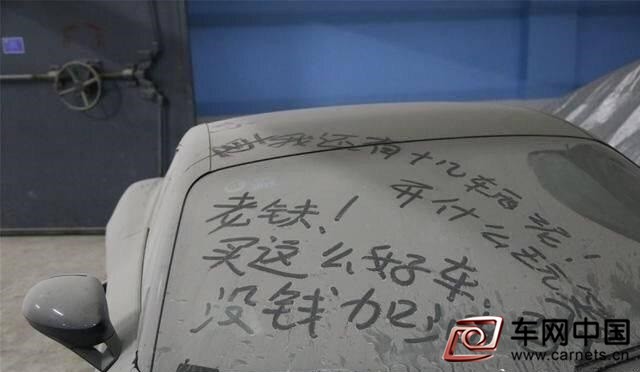 我还有十几车
开什么玩
老铁！
买这么好车
没钱加
车网中国
www.carnets.cn